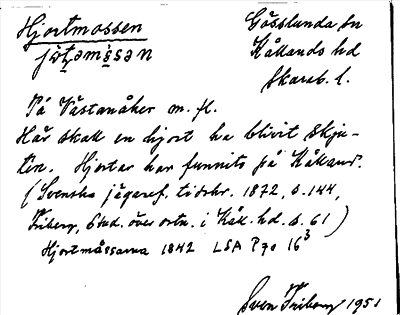 Hjortmossen
Gösslunda sn
Kållands hd
Skarab. l.
På Västanåker m. fl.
Här skall en hjort ha blivit skju-
ten. Hjortar har funnits på Kålland.
(Svenska jägaref. tidskr. 1872, s. 144,
Friberg, Stud. över ortn. i Kåll. hd. s. 61)
Hjortmåssarna 1842 LSA P 70 16³
Sven Friberg 1951